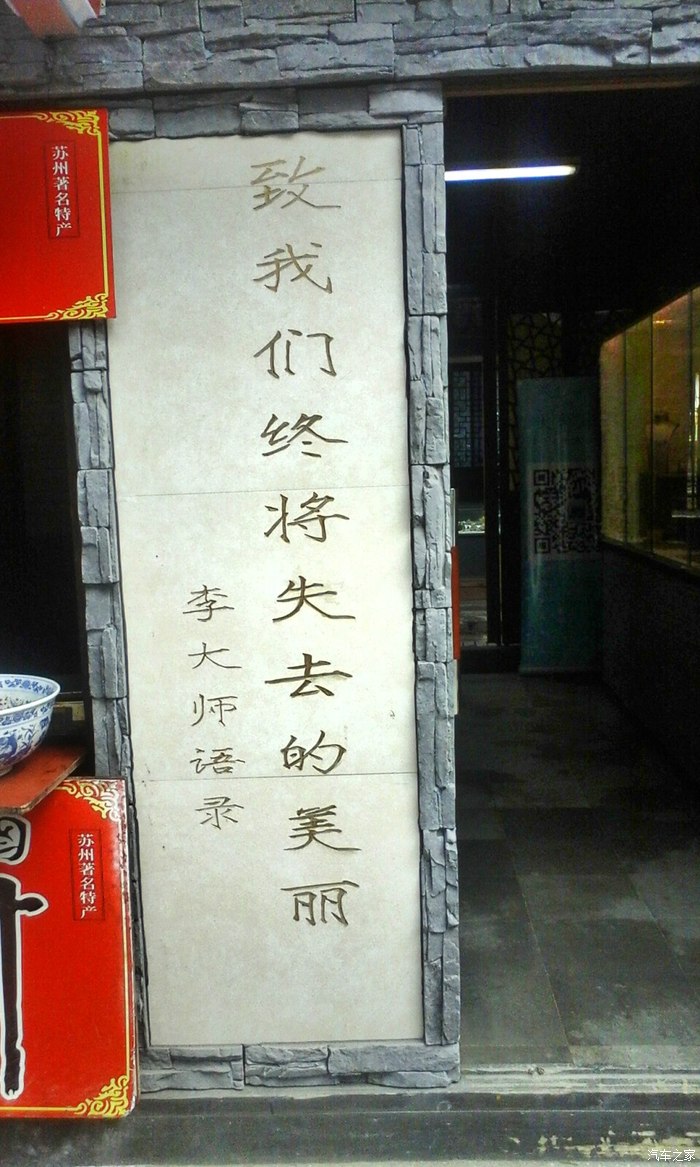 致我们终将失去的美丽
李大师语录
苏州著名特产
苏州著名特产
汽车之家